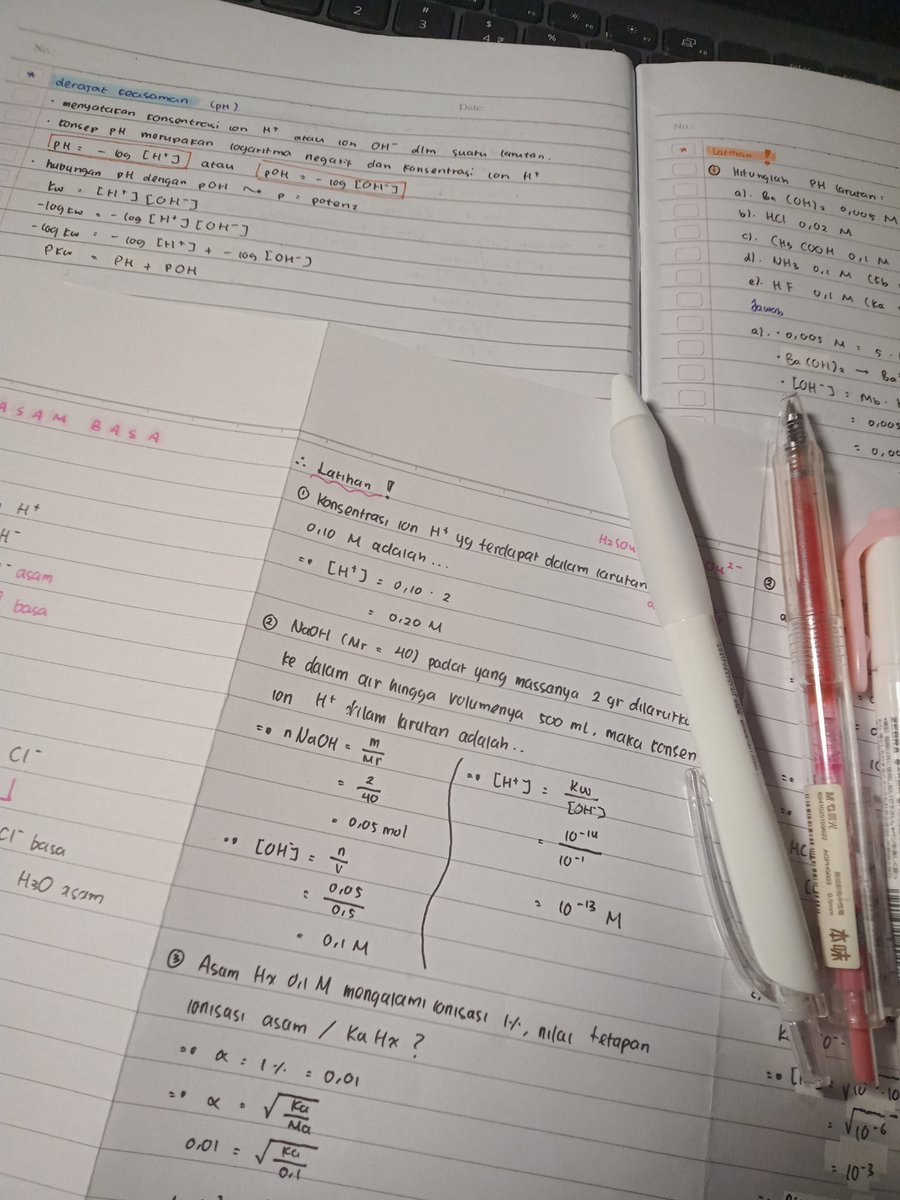 No.:
Date:
* derajat keasaman (pH)
• menyatakan konsentrasi ion H⁺ atau ion OH⁻ dlm suatu larutan.
• konsep pH merupakan logaritma negatif dan konsentrasi ion H⁺
pH = - log [H⁺] atau pOH = - log [OH⁻]
• hubungan pH dengan pOH ~ p = potenz
Kw = [H⁺] [OH⁻]
-log Kw = - log [H⁺] [OH⁻]
-log Kw = - log [H⁺] + - log [OH⁻]
PKw = PH + POH
No.:
* Latihan !
① Hitunglah PH larutan:
a). Ba (OH)₂ 0,005 M
b). HCl 0,02 M
c). CH₃ COOH 0,1 M
d). NH₃ 0,1 M (Kb
e). HF 0,1 M (Ka
Jawab
a). • 0,005 M = 5 .
• Ba (OH)₂ → Ba
• [OH⁻] = Mb .
= 0,005
= 0,00
ASAM BASA
H⁺
H⁻
asam
basa
Cl⁻
Cl⁻ basa
H₃O asam
∴ Latihan !
① Konsentrasi ion H⁺ yg terdapat dalam larutan H₂SO₄
0,10 M adalah ...
=> [H⁺] = 0,10 . 2
= 0,20 M
② NaOH (Mr = 40) padat yang massanya 2 gr dilarutka
ke dalam air hingga volumenya 500 ml, maka konsen
ion H⁺ dilam larutan adalah ..
=> n NaOH = m/Mr
= 2/40
= 0,05 mol
=> [OH⁻] = n/V
= 0,05/0,5
= 0,1 M
=> [H⁺] = Kw/[OH⁻]
= 10⁻¹⁴/10⁻¹
= 10⁻¹³ M
③ Asam Hx 0,1 M mengalami ionisasi 1%, nilai tetapan
ionisasi asam / Ka Hx ?
=> α = 1% = 0,01
=> α = √Ka/Ma
0,01 = √Ka/0,1
②
HC
= √10⁻⁶
= 10⁻³
本味